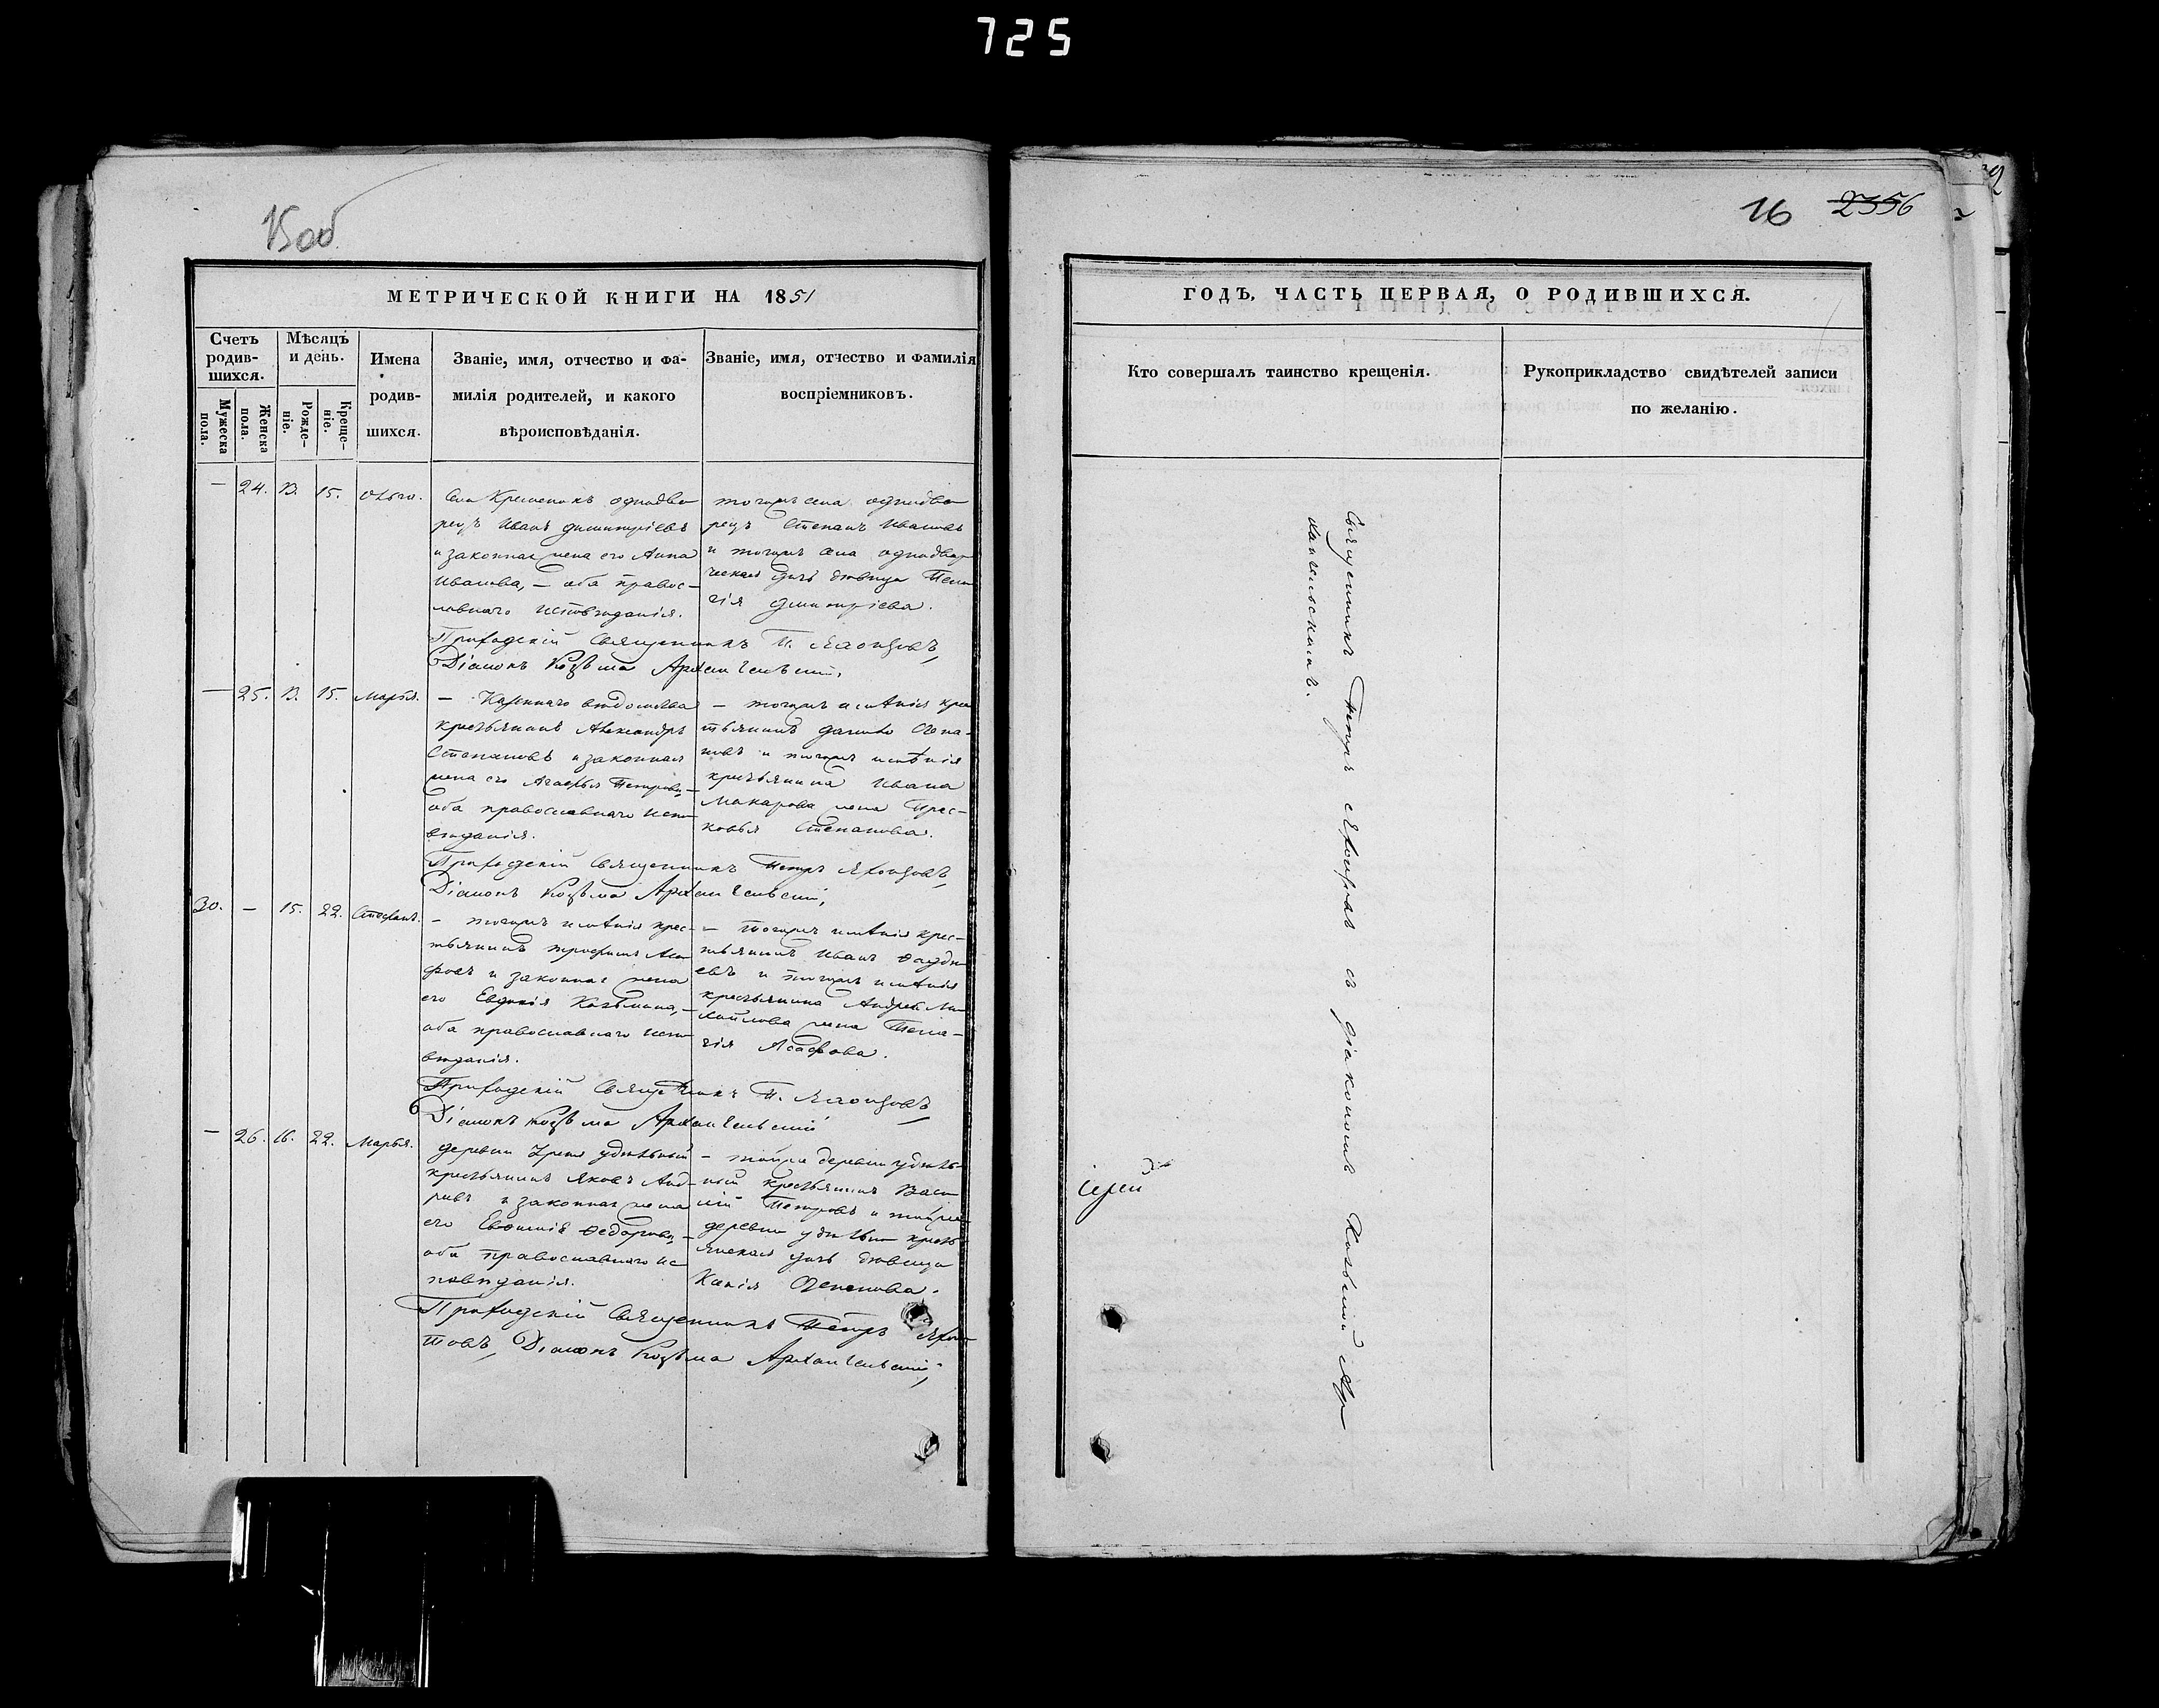 725
15об
МЕТРИЧЕСКОЙ КНИГИ НА 1851
Счетъ родив-шихся.
Мѣсяцъ и день.
Имена родив-шихся.
Званіе, имя, отчество и фа-
милія родителей, и какого
вѣроисповѣданія.
Званіе, имя, отчество и фамилія
воспріемниковъ.
Мужеска пола.
Женска пола.
Рожде-ніе.
Креще-ніе.
— 24. 13. 15. Ольга.
однодво
рецъ Иванъ Димитріевъ
и законная жена его Анна
Иванова, — оба правос-
лавнаго исповѣданія.
тогожъ села однодво
рецъ Степанъ Ивановъ
и тогожъ села однодвор
ческая дочь девица Пела
гія Димитріева.
Приходскій Священникъ П.
Діаконъ Козьма Архангельскій,
— 25. 13. 15. Марья.
— Казеннаго вѣдомства
крестьянинъ Александръ
Степановъ и законная
жена его Агафья Петрова,—
оба православнаго испо
вѣданія.
— тогожъ имѣнія кре
стьянинъ Данило Степа-
новъ и тогожъ имѣнія
крестьянина Ивана
Макарова жена Прас-
ковья Степанова.
Приходскій Священникъ Петръ
Діаконъ Козьма Архангельскій,
30. — 15. 22. Стефанъ.
— тогожъ имѣнія крес-
тьянинъ Трофимъ
и законная жена
его Евдокія Козьмина,—
оба православнаго испо
вѣданія.
— тогожъ имѣнія крес-
тьянинъ Иванъ
евъ и тогожъ имѣнія
крестьянина Андрея Ми
хайлова жена Пела-
гія Асафова.
Приходскій Священникъ П.
Діаконъ Козьма Архангельскій
— 26. 16. 22. Марья.
деревни удѣльный
крестьянинъ Яковъ
и законная жена
его Ѳедорова,—
оба православнаго ис
повѣданія.
— тойже деревни удѣль-
ный крестьянинъ Васи
лій Петровъ и тойже
деревни удѣльн крестья
янская дочь девица
Степанова.
Приходскій Священникъ Петръ
Діаконъ Козьма Архангельскій,
16 2356
ГОДЪ, ЧАСТЬ ПЕРВАЯ, О РОДИВШИХСЯ.
Кто совершалъ таинство крещенія.
Рукоприкладство свидѣтелей записи
по желанію.
Священникъ Петръ съ діакономъ Козьмой Ар
хангельскимъ.
іерей